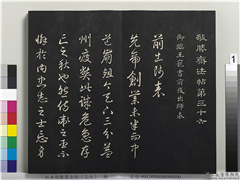 敬勝齋法帖第三十六
御臨王寵書前後出師表
前出師表
先帝創業未半而中
道崩殂今天下三分益
州疲弊此誠危急存
亡之秋也然侍衛之臣不
懈於內忠志之士忘身